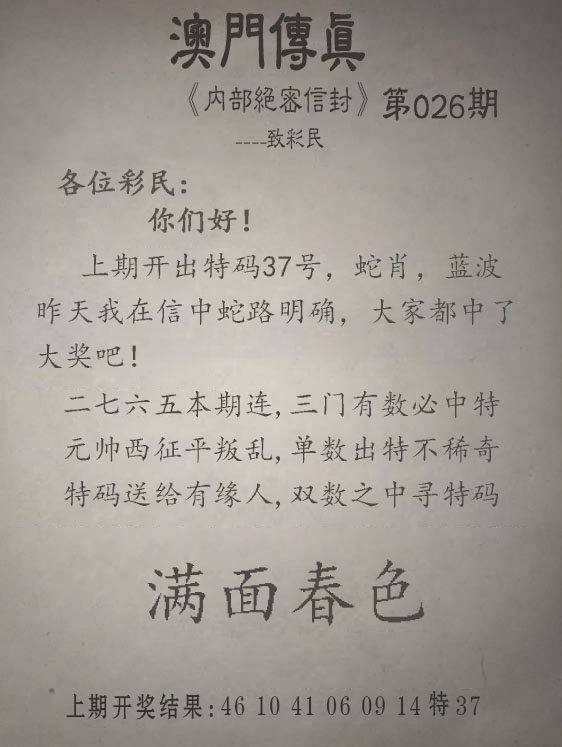 澳門傳真
《内部絕密信封》第026期
----致彩民
各位彩民：
你们好！
上期开出特码37号，蛇肖，蓝波
昨天我在信中蛇路明确，大家都中了
大奖吧！
二七六五本期连,三门有数必中特
元帅西征平叛乱,单数出特不稀奇
特码送给有缘人,双数之中寻特码
满面春色
上期开奖结果:46 10 41 06 09 14 特 37